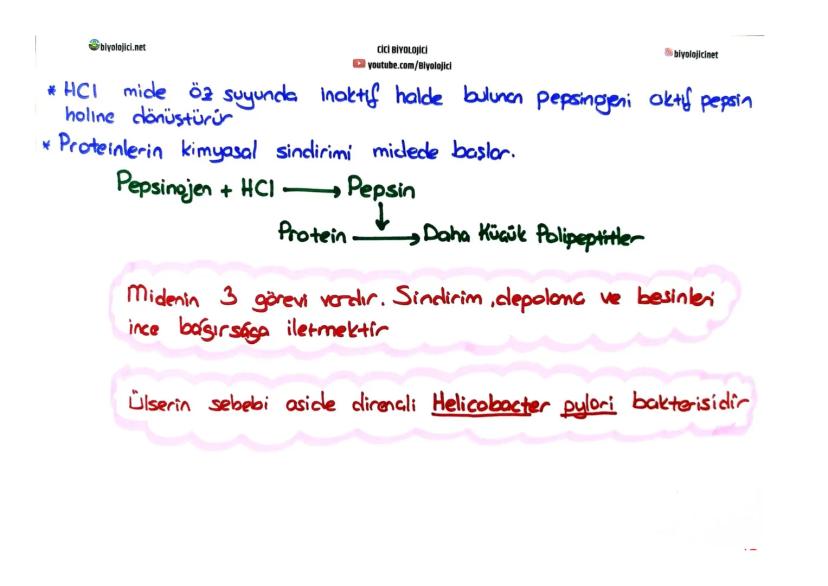 biyolojici.net
CİCİ BİYOLOJİCİ
youtube.com/Biyolojici
biyolojicinet
* HCl mide öz suyunda inaktif halde bulunan pepsinojeni aktif pepsin
haline dönüştürür
* Proteinlerin kimyasal sindirimi midede başlar.
Pepsinojen + HCl → Pepsin
↓
Protein → Daha Küçük Polipeptitler
Midenin 3 görevi vardır. Sindirim, depolama ve besinleri
ince bağırsağa iletmektir
Ülserin sebebi aside dirençli Helicobacter pylori bakterisidir